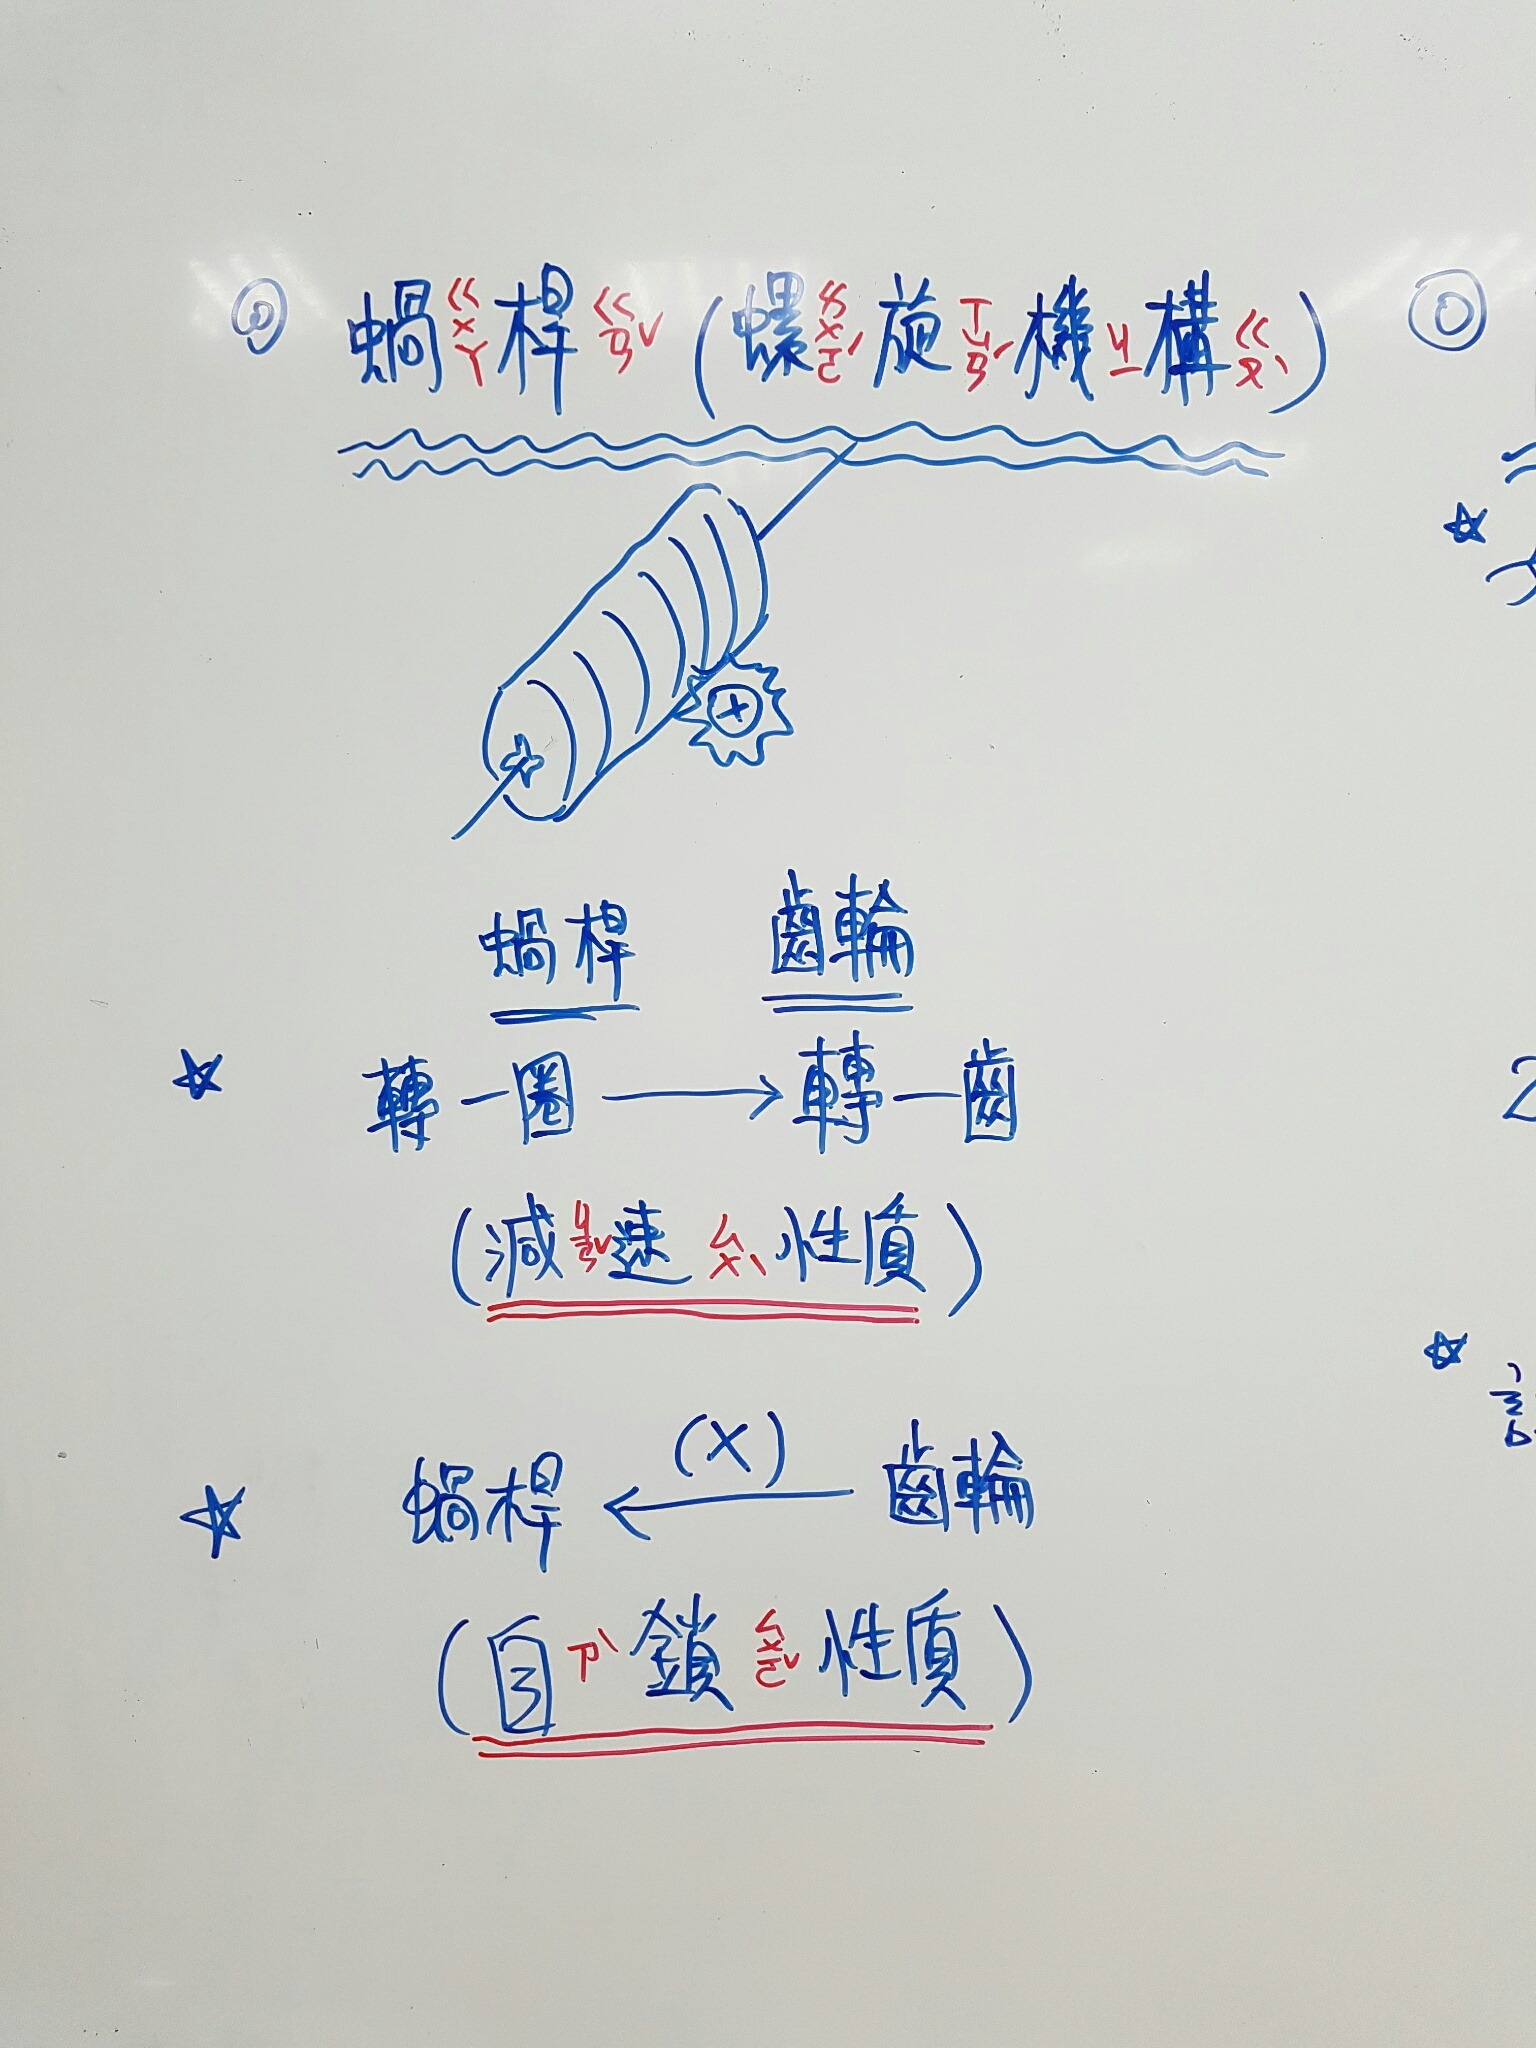 ◎ 蝸ㄍㄨㄚ桿ㄍㄢˇ(螺ㄌㄨㄛˊ旋ㄒㄩㄢˊ機ㄐㄧ構ㄍㄡˋ)
蝸桿 齒輪
☆ 轉一圈 → 轉一齒
(減ㄐㄧㄢˇ速ㄙㄨˋ性質)
☆ 蝸桿 ←(X) 齒輪
(自ㄗˋ鎖ㄙㄨㄛˇ性質)
◎
☆
2
☆